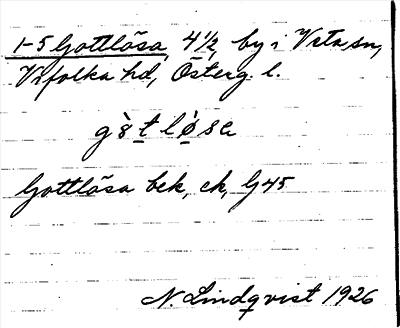 1-5 Gottlösa, 4 1/2, by i Vreta sn,
Vifolka hd, Österg. l.
gòtløsa
Gottlösa bek, ek, G45
N. Lindqvist 1926